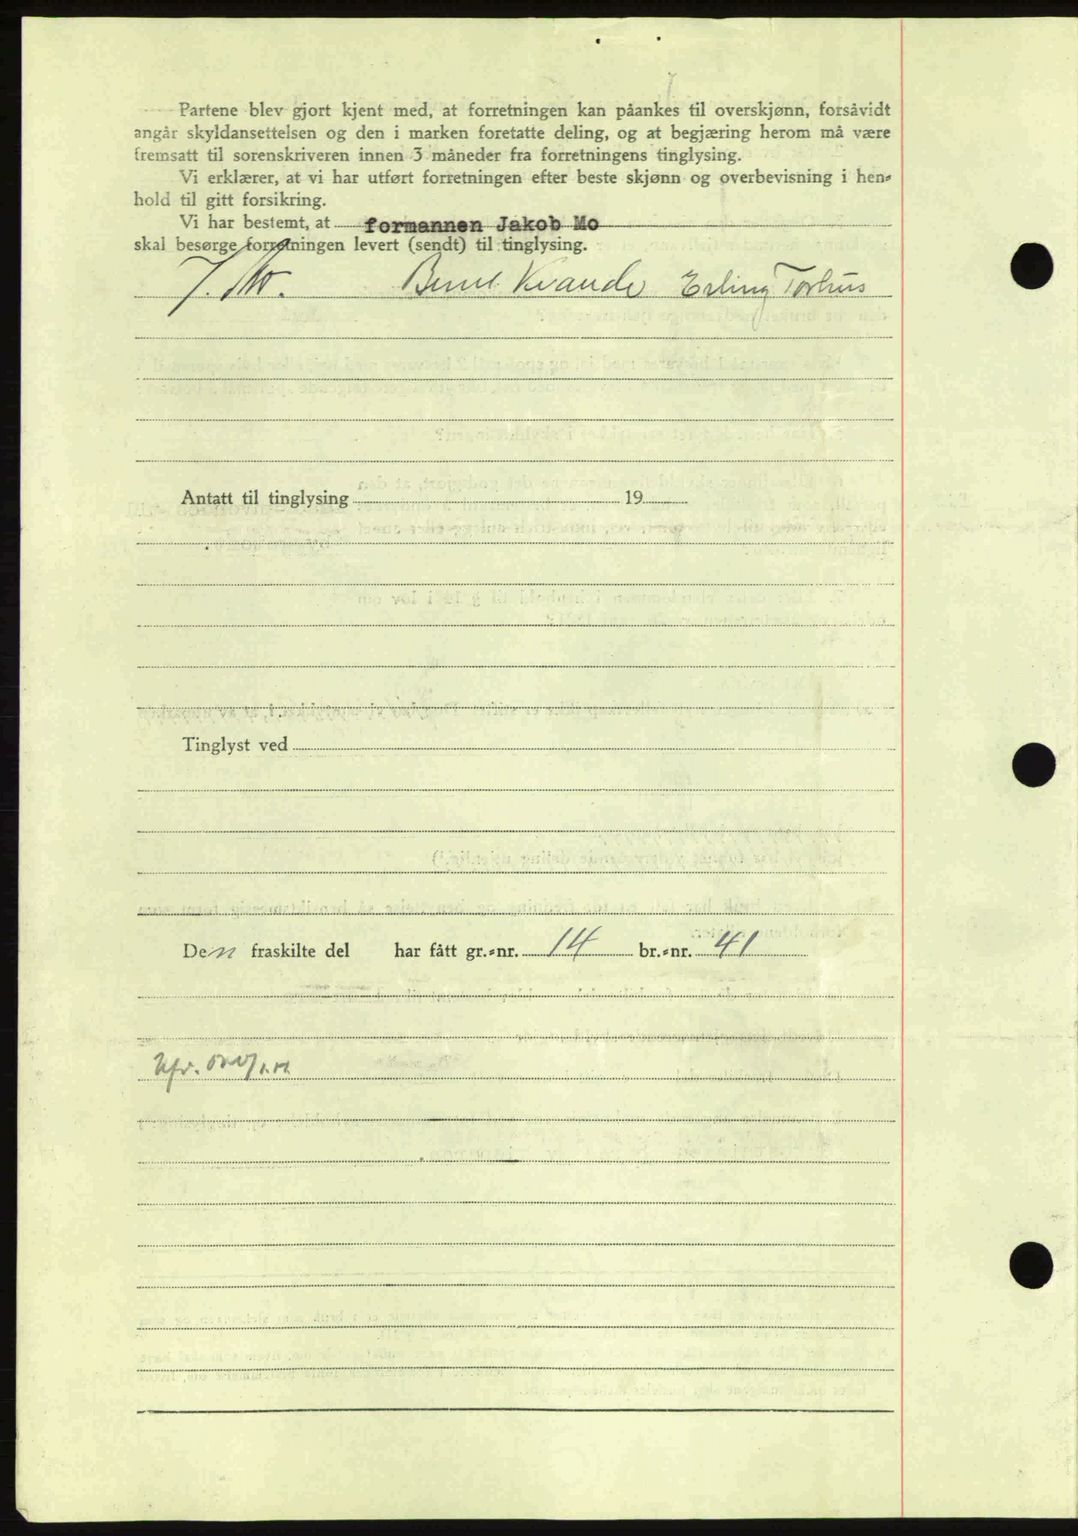 Partene blev gjort kjent med, at forretningen kan påankes til overskjønn, forsåvidt
angår skyldansettelsen og den i marken foretatte deling, og at begjæring herom må være
fremsatt til sorenskriveren innen 3 måneder fra forretningens tinglysing.
Vi erklærer, at vi har utført forretningen efter beste skjønn og overbevisning i hen-
hold til gitt forsikring.
Vi har bestemt, at formannen Jakob Mo
skal besørge forretningen levert (sendt) til tinglysing.
J. Mo. Bernt Kvande Erling Torhus
Antatt til tinglysing 19
Tinglyst ved
Den fraskilte del har fått gr.-nr. 14 br.-nr. 41